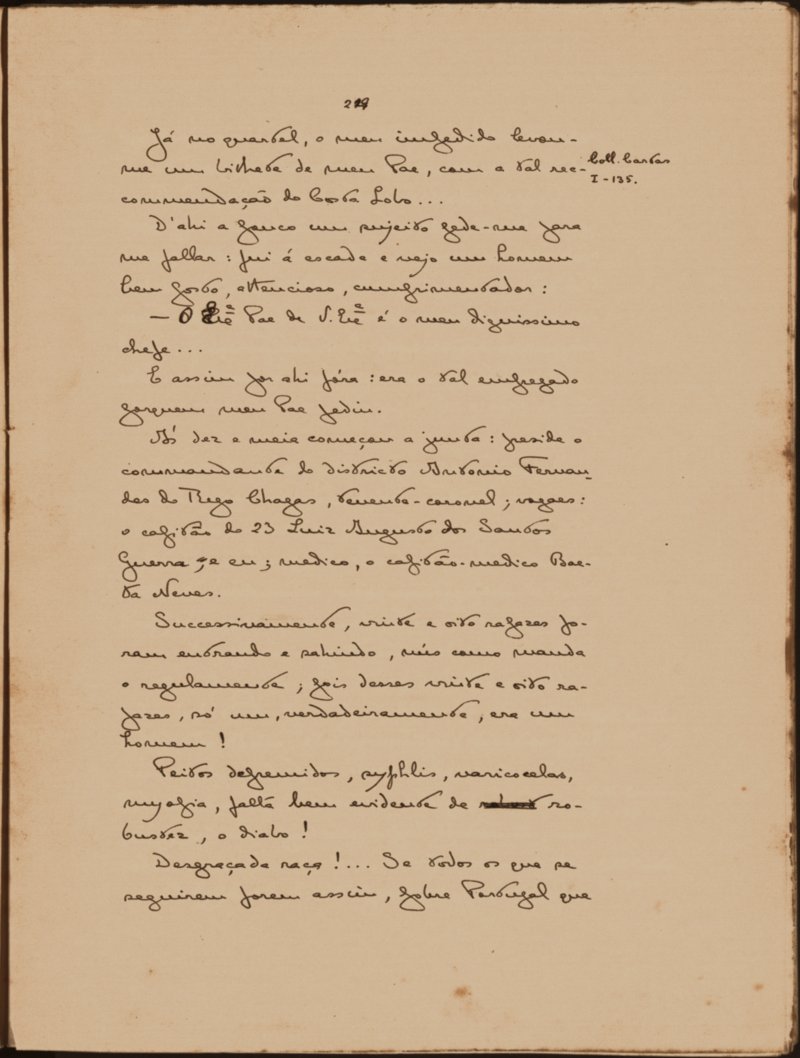 229
Já no quartel, o meu impedido levou-
me um bilhete de meu Pae, com a tal rec-
Coll. Cartas
I-135.
commendação do Costa Lobo...
D'ahi a pouco um sujeito pede-me para
me fallar: fui á escada e vejo um homem
bem posto, attencioso, cumprimentador:
— O Exº Pae de V. Exª é o meu dignissimo
chefe...
E assim por ahi fóra: era o tal empregado
porquem meu Pae pediu.
Ás dez e meia começou a junta: preside o
commandante do districto Antonio Fernan-
des do Rego Chagas, tenente-coronel; vogaes:
o capitão do 23 Luiz Augusto dos Santos
Guerra e eu; medico, o capitão-medico Bae-
ta Neves.
Successivamente, vinte e oito rapazes fo-
ram entrando e sahindo, nús como manda
o regulamento; pois desses vinte e oito ra-
pazes, só um, verdadeiramente, era um
homem!
Peitos depremidos, syphlis, varicocelas,
myopia, falta bem evidente de ro-
bustez, o diabo!
Desgraçada raça!... Se todos os que se
seguirem forem assim, pobre Portugal que